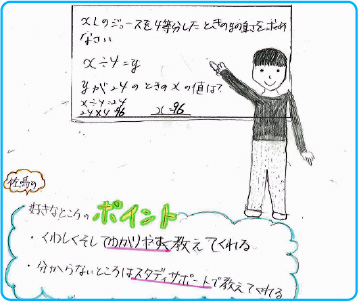 xLのジュースを4等分したときのyの重さを求め
なさい
x÷4=y
yが24のときのxの値は?
x÷4=24
24×4 96 x 96
佐鳥の
好きなところ・ポイント
・くわしくそしてわかりやすく教えてくれる
・分からないところはスタディサポートで教えてくれる